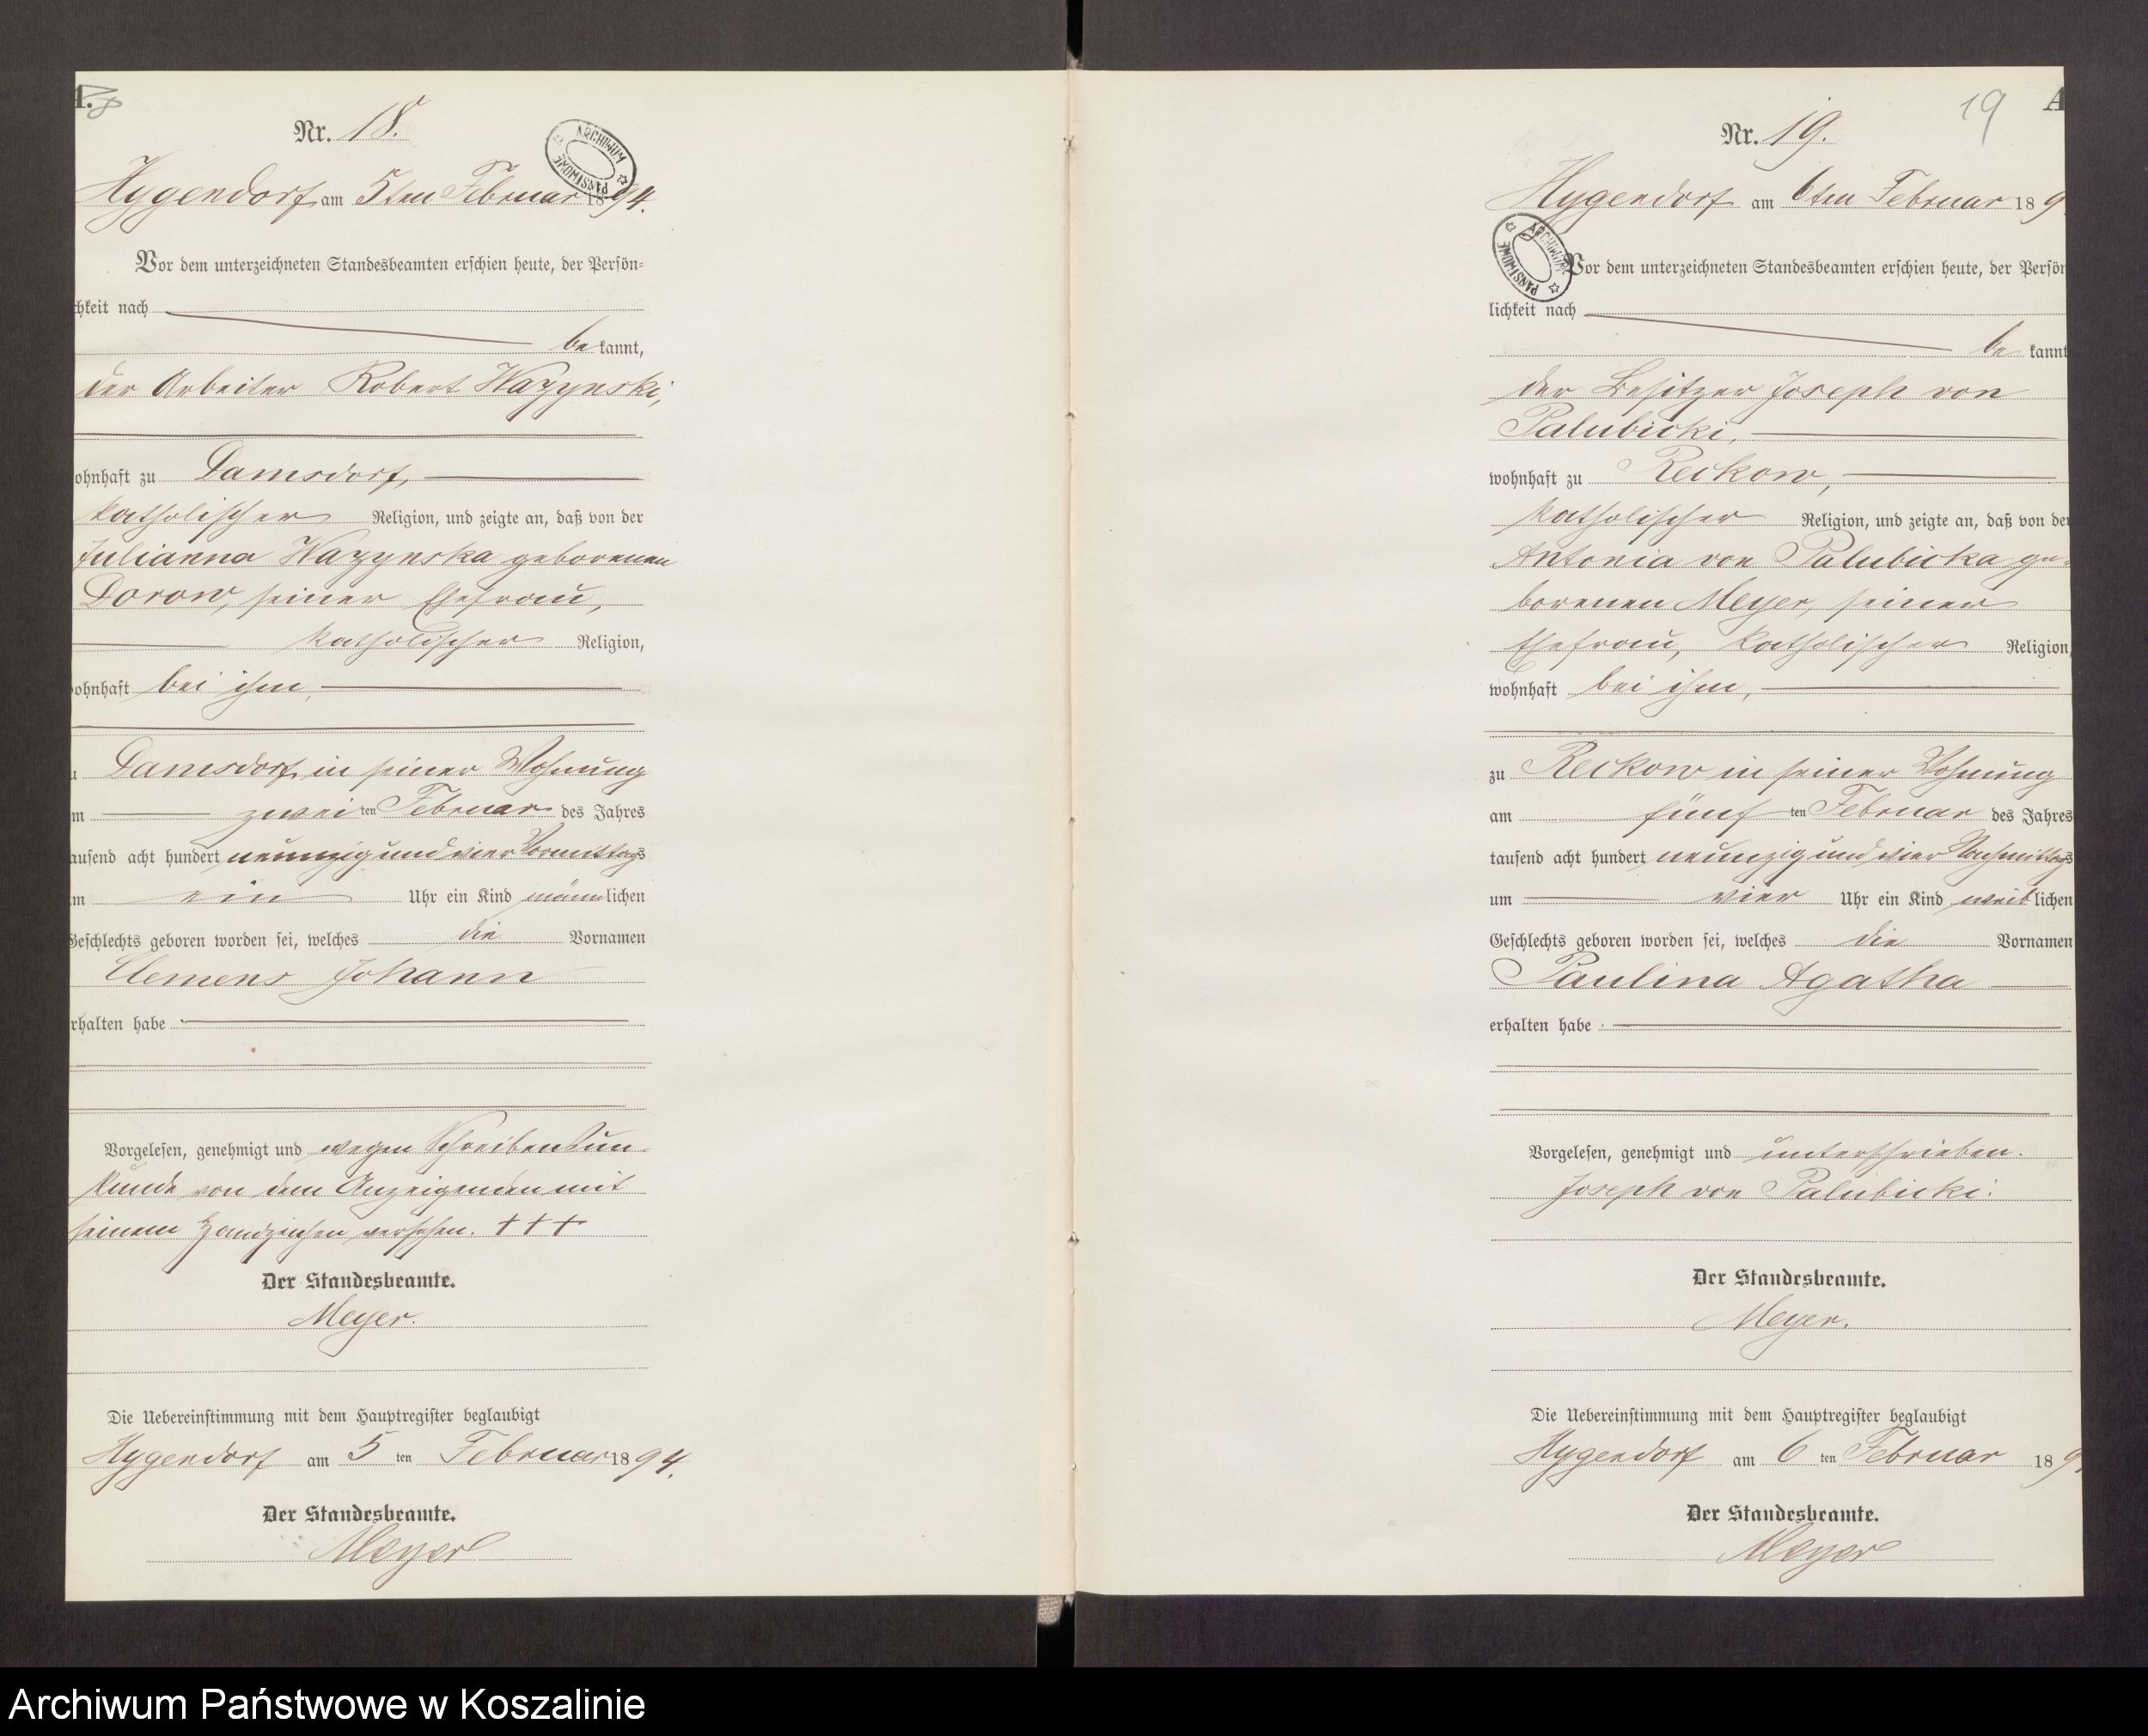 Nr. 18.
ARCHIWUM PAŃSTWOWE
Hygendorf am 5ten Februar 1894.
Vor dem unterzeichneten Standesbeamten erschien heute, der Persön-
chkeit nach
be kannt,
der Arbeiter Robert Wazynski,
ohnhaft zu Damsdorf,
katholischer Religion, und zeigte an, daß von der
Julianna Wazynska geborenen
Dorow, seiner Ehefrau,
katholischer Religion,
ohnhaft bei ihm,
u Damsdorf in seiner Wohnung
m zwei ten Februar des Jahres
ausend acht hundert neunzig und vier Vormittags
m ein Uhr ein Kind männlichen
Geschlechts geboren worden sei, welches die Vornamen
Clemens Johann
rhalten habe
Vorgelesen, genehmigt und wegen Schreibensun-
kunde von dem Anzeigenden mit
seinem Handzeichen versehen. +++
Der Standesbeamte.
Meyer.
Die Uebereinstimmung mit dem Hauptregister beglaubigt
Hygendorf am 5 ten Februar 1894.
Der Standesbeamte.
Meyer
19 A
Nr. 19.
Hygendorf am 6ten Februar 189
ARCHIWUM PAŃSTWOWE
Vor dem unterzeichneten Standesbeamten erschien heute, der Persön
lichkeit nach
be kannt
der Besitzer Joseph von
Palubicki,
wohnhaft zu Reckow,
katholischer Religion, und zeigte an, daß von der
Antonia von Palubicka ge-
borenen Meyer, seiner
Ehefrau, katholischer Religion,
wohnhaft bei ihm,
zu Reckow in seiner Wohnung
am fünf ten Februar des Jahres
tausend acht hundert neunzig und vier Nachmittags
um vier Uhr ein Kind weiblichen
Geschlechts geboren worden sei, welches die Vornamen
Paulina Agatha
erhalten habe
Vorgelesen, genehmigt und unterschrieben.
Joseph von Palubicki.
Der Standesbeamte.
Meyer.
Die Uebereinstimmung mit dem Hauptregister beglaubigt
Hygendorf am 6 ten Februar 189
Der Standesbeamte.
Meyer
Archiwum Państwowe w Koszalinie